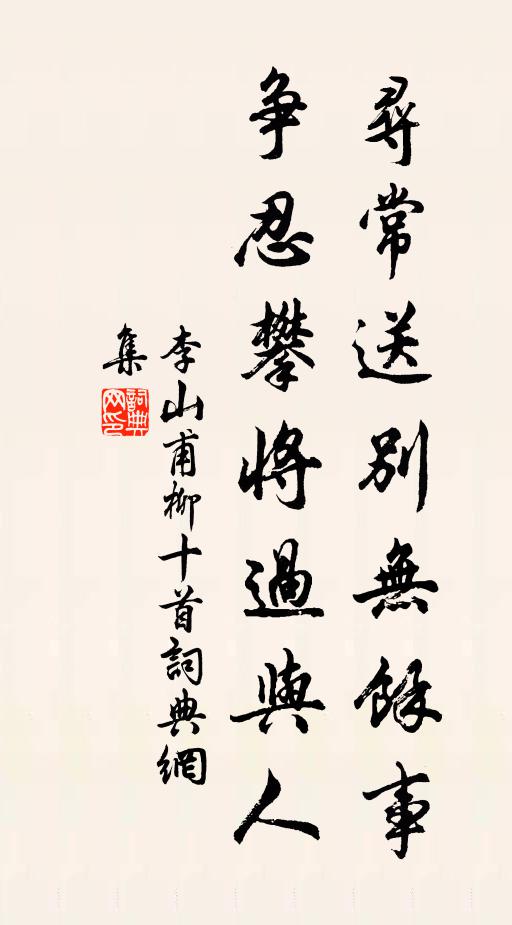 尋常送別無餘事
爭忍攀將過與人
李山甫柳十首詞典網
集
詞典
网印